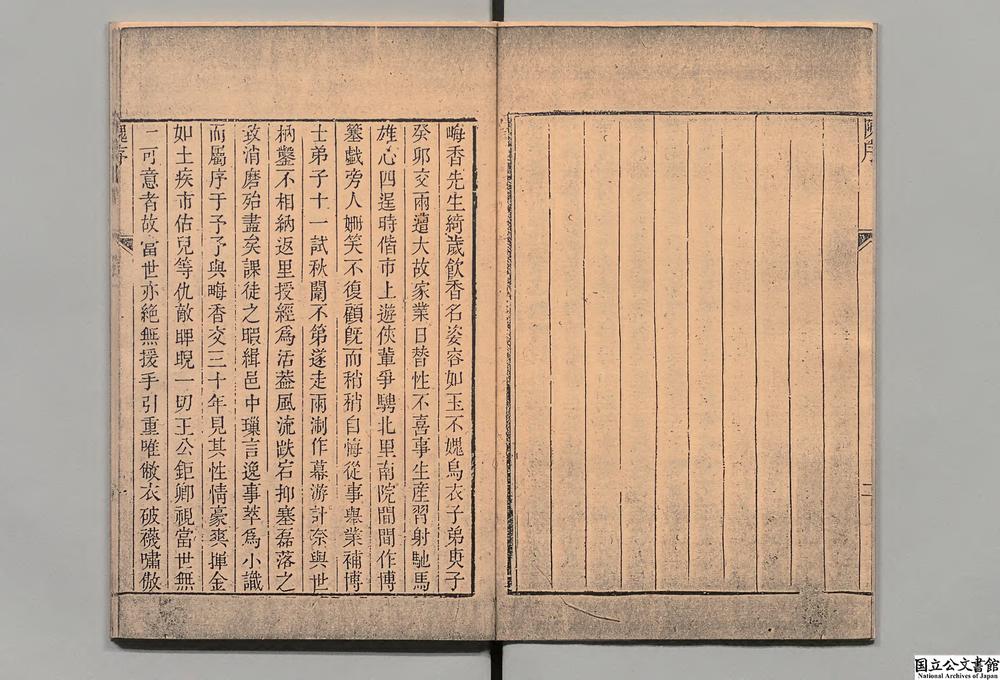 晦香先生綺歲飲香名姿容如玉不媿烏衣子弟庚子
癸卯交兩遭大故家業日替性不喜事生產習射馳馬
雄心四逞時偕市上遊俠輩爭騁北里南院間間作博
簺戲旁人姍笑不復顧旣而稍稍自悔從事舉業補博
士弟子十一試秋闈不第遂走兩淛作幕游計柰與世
枘鑿不相納返里授經爲活葢風流歇宕抑塞磊落之
致消磨殆盡矣課徒之暇緝邑中瑣言逸事萃爲小識
而屬序于予予與晦香交三十年見其性情豪爽揮金
如土疾市估兒等仇敵睥睨一切王公鉅卿視當世無
一可意者故當世亦絕無援手引重唯敝衣破襪嘯傲
序
二
国立公文書館
National Archives of Japan